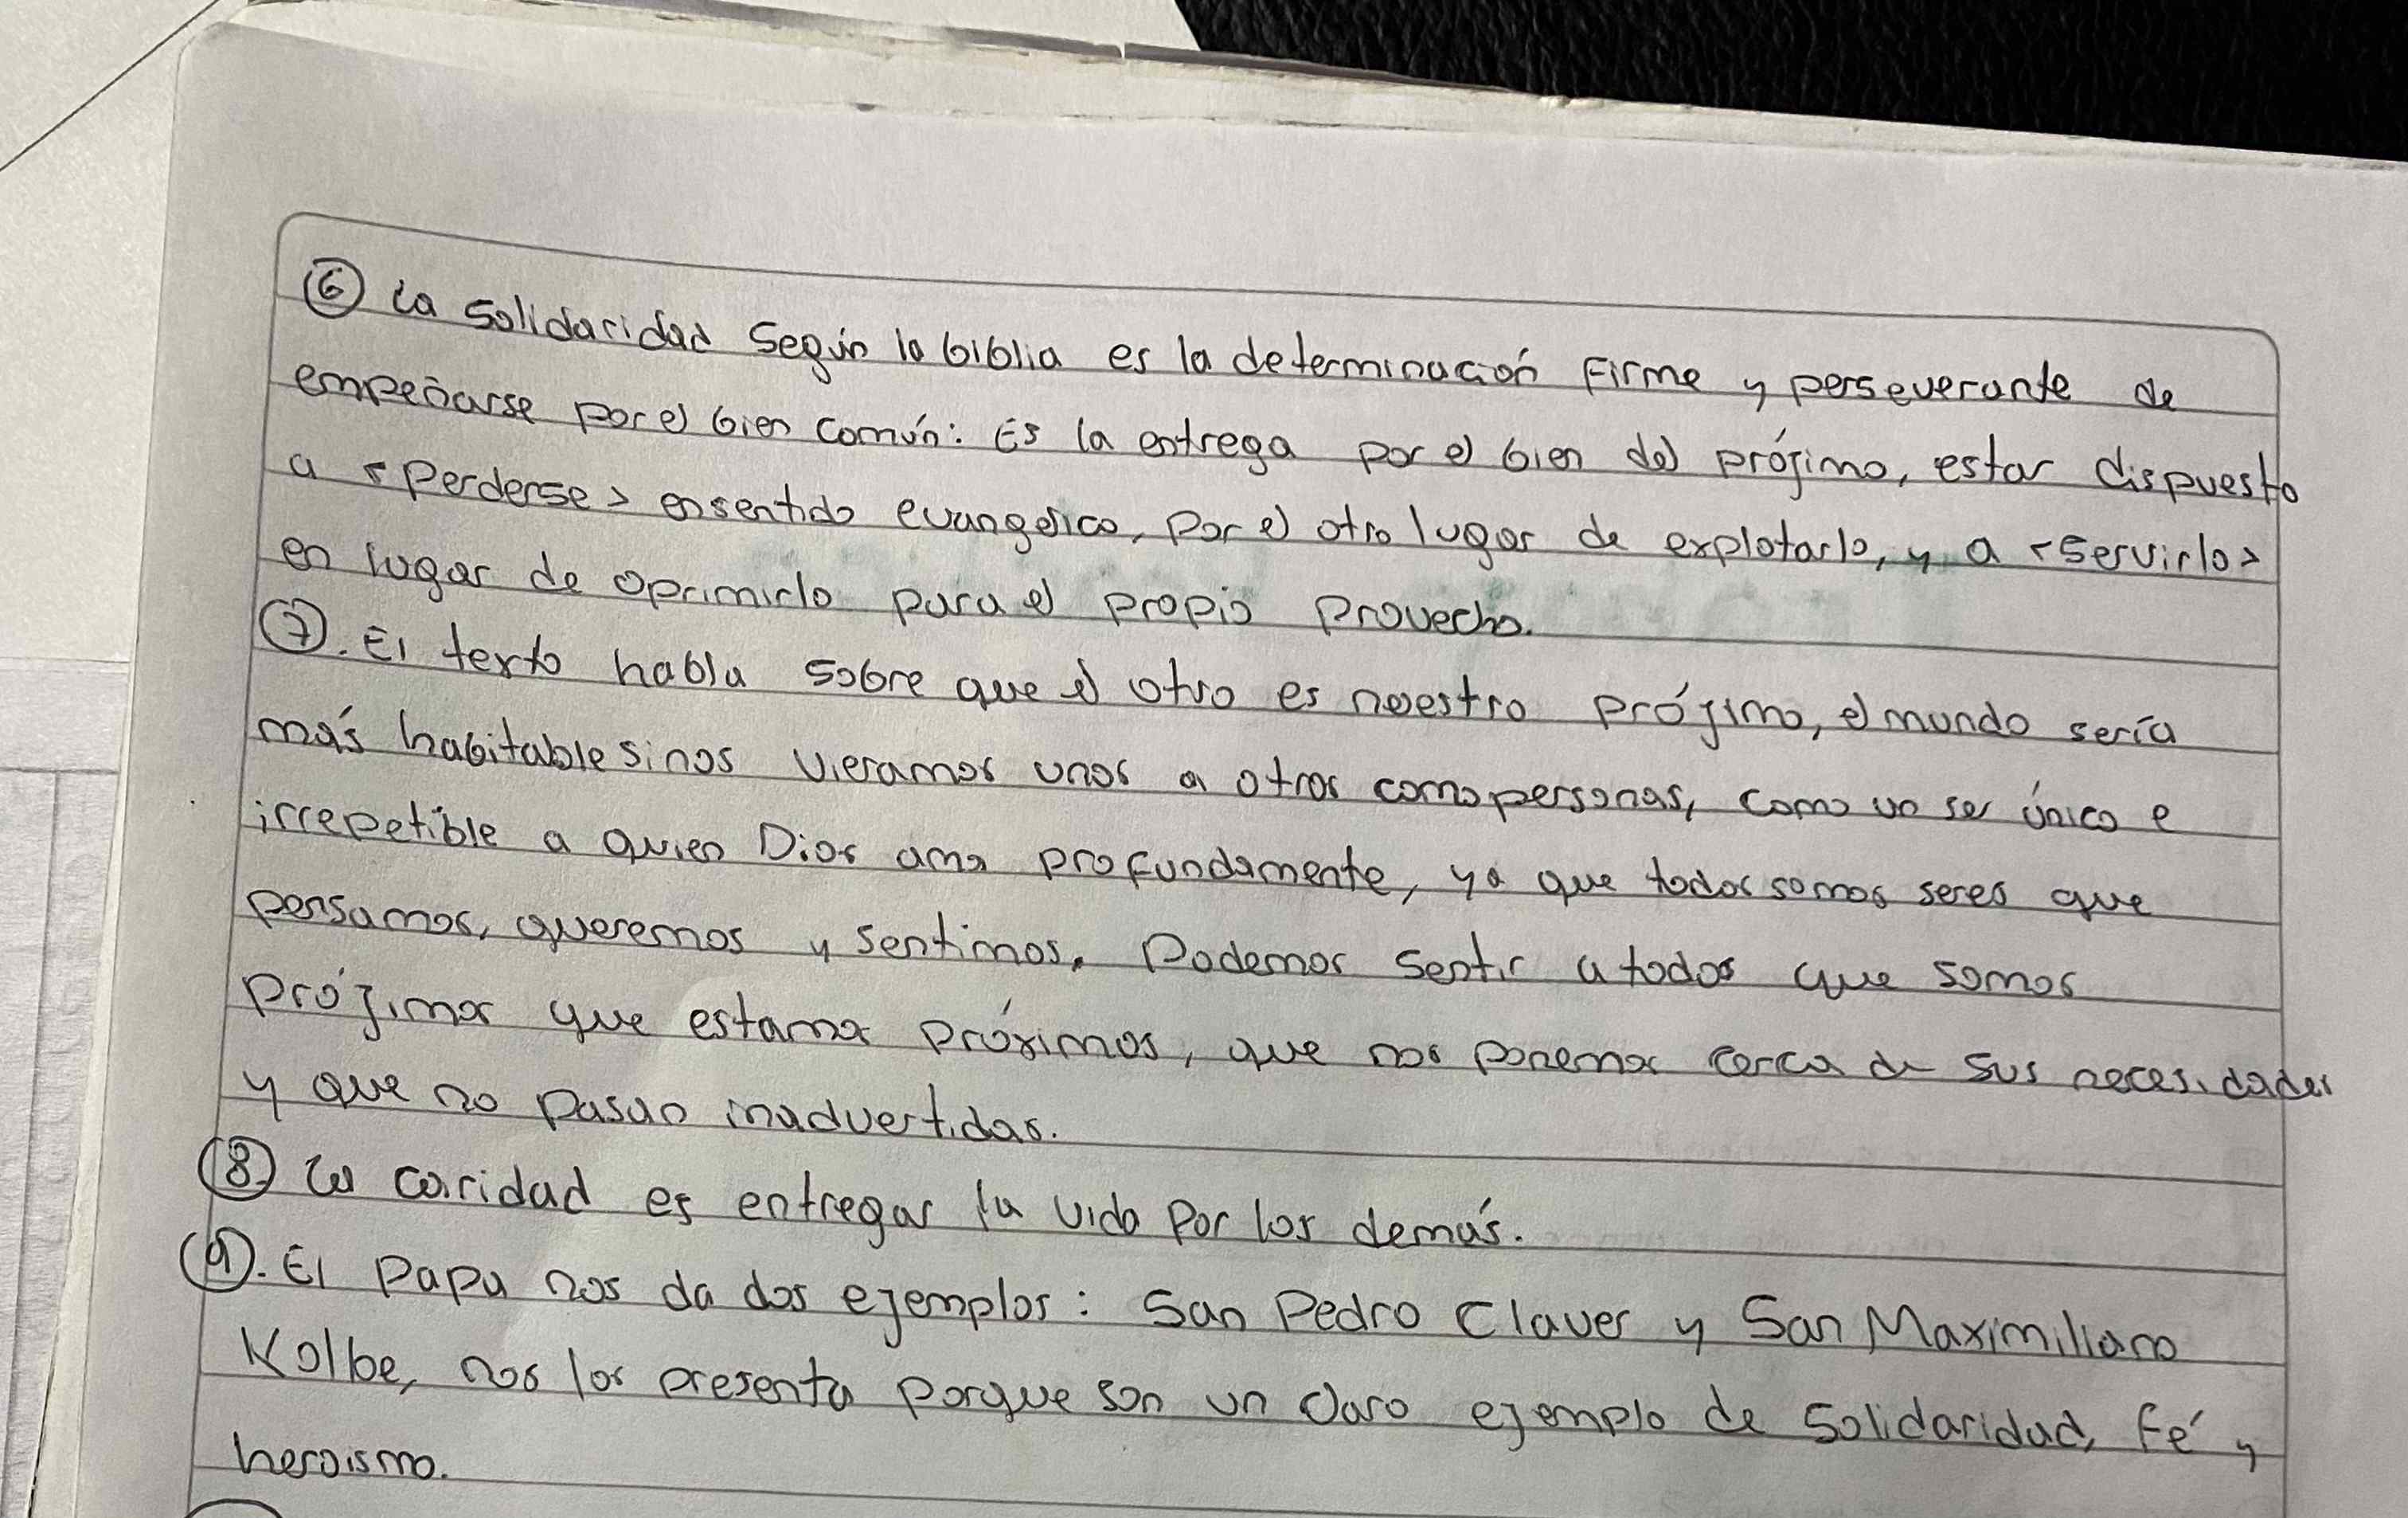 ⑥ La solidaridad según la biblia es la determinación firme y perseverante de
empeñarse por el bien común: Es la entrega por el bien del prójimo, estar dispuesto
a <perderse> en sentido evangelico, por el otro lugar de explotarlo, y a <servirlo>
en lugar de oprimirlo para el propio provecho.
⑦. El texto habla sobre que el otro es nuestro prójimo, el mundo sería
más habitable si nos vieramos unos a otros como personas, como un ser único e
irrepetible a quien Dios ama profundamente, ya que todos somos seres que
pensamos, queremos y sentimos. Podemos sentir a todos que somos
prójimos que estamos próximos, que nos ponemos cerca de sus necesidades
y que no pasan inadvertidas.
⑧ La caridad es entregar la vida por los demás.
⑨. El Papa nos da dos ejemplos: San Pedro Claver y San Maximiliano
Kolbe, nos los presenta porque son un claro ejemplo de solidaridad, fé y
heroismo.